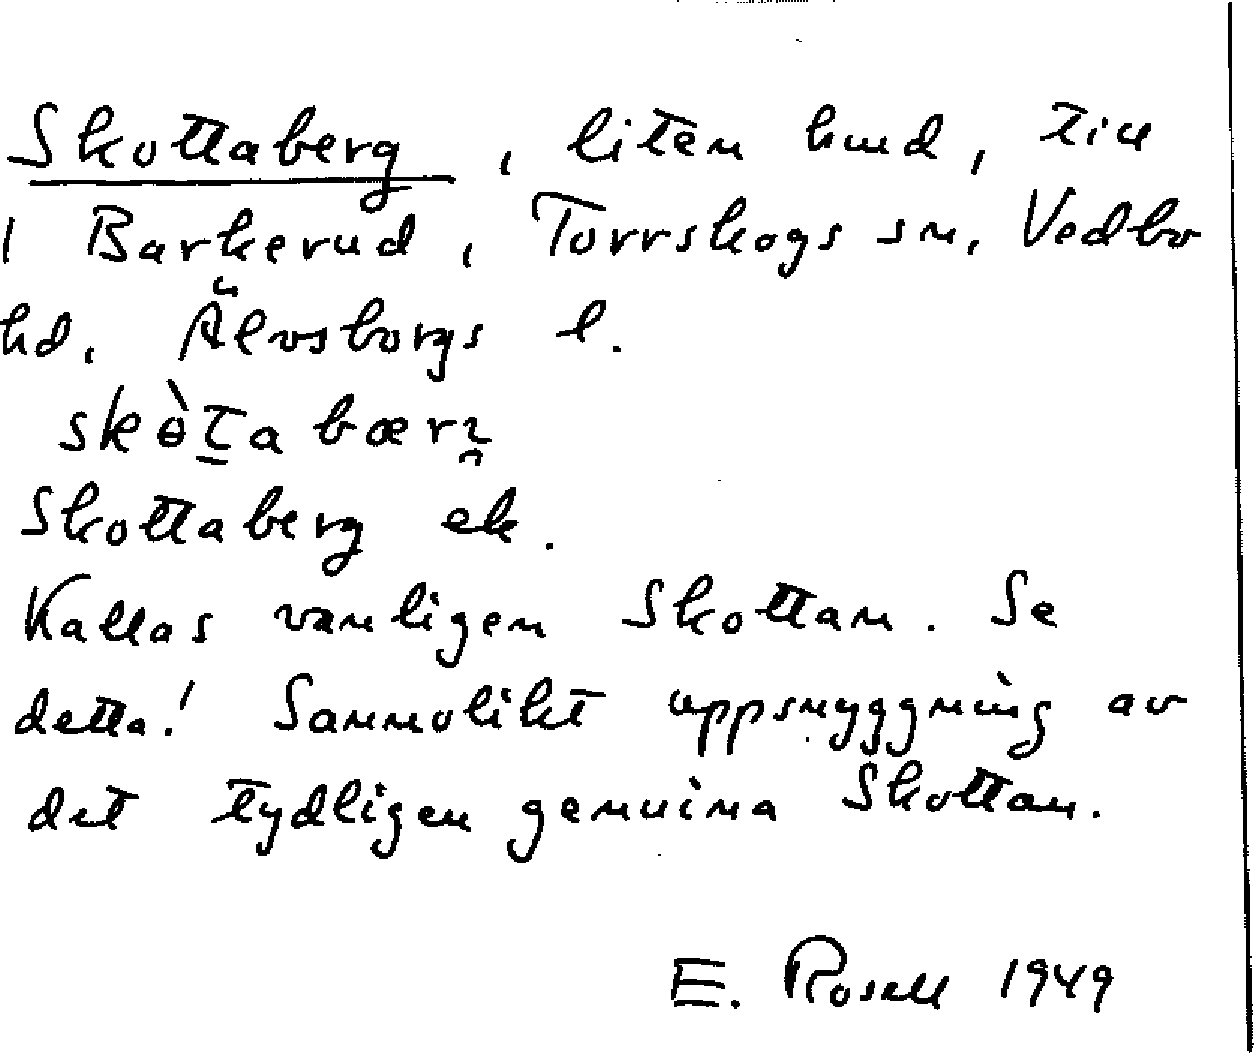 Skottaberg, liten lund, till
1 Barkerud, Torrskogs sn, Vedbo
hd. Älvsborgs l.
Skottaberg ek.
Kallas vanligen Skottan. Se
detta! Sannolikt uppsnyggning av
det tydligen genuina Skottan.
E. Rosell 1949